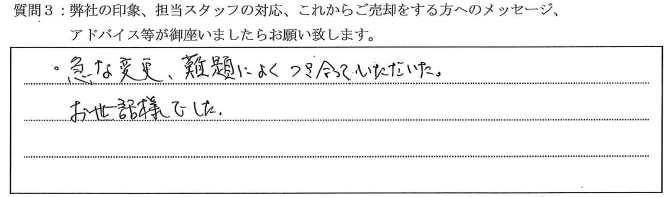 質問3：弊社の印象、担当スタッフの対応、これからご売却をする方へのメッセージ、
アドバイス等が御座いましたらお願い致します。
。急な変更、難題によくつき合っていただいた。
お世話様でした.